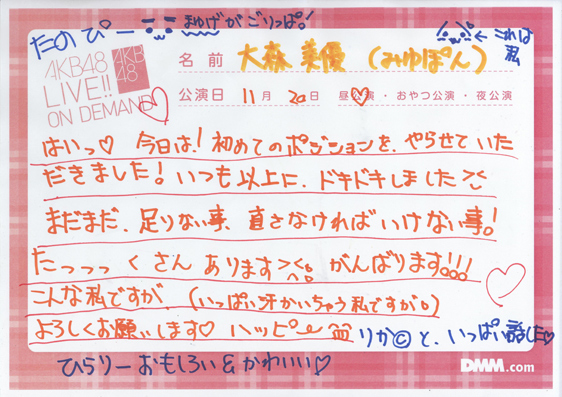 たのぴー まゆげがごりっぱ!
これは私
AKB48
LIVE!!
ON DEMAND
AKB48
名前 大森美優 (みゆぽん)
公演日 11月 20日 昼公演・おやつ公演・夜公演
はいっ♡ 今日は!初めてのポジションを、やらせていた
だきました!いつも以上に、ドキドキしました><
まだまだ、足りない事、直さなければいけない事!
たっっっくさんあります><。 がんばります!!!
こんな私ですが、(いっぱい汗かいちゃう私ですが。)
よろしくお願いします♡ ハッピー
りか©と、いっぱい話した♡
ひらりーおもしろい&かわいい♡
DMM.com